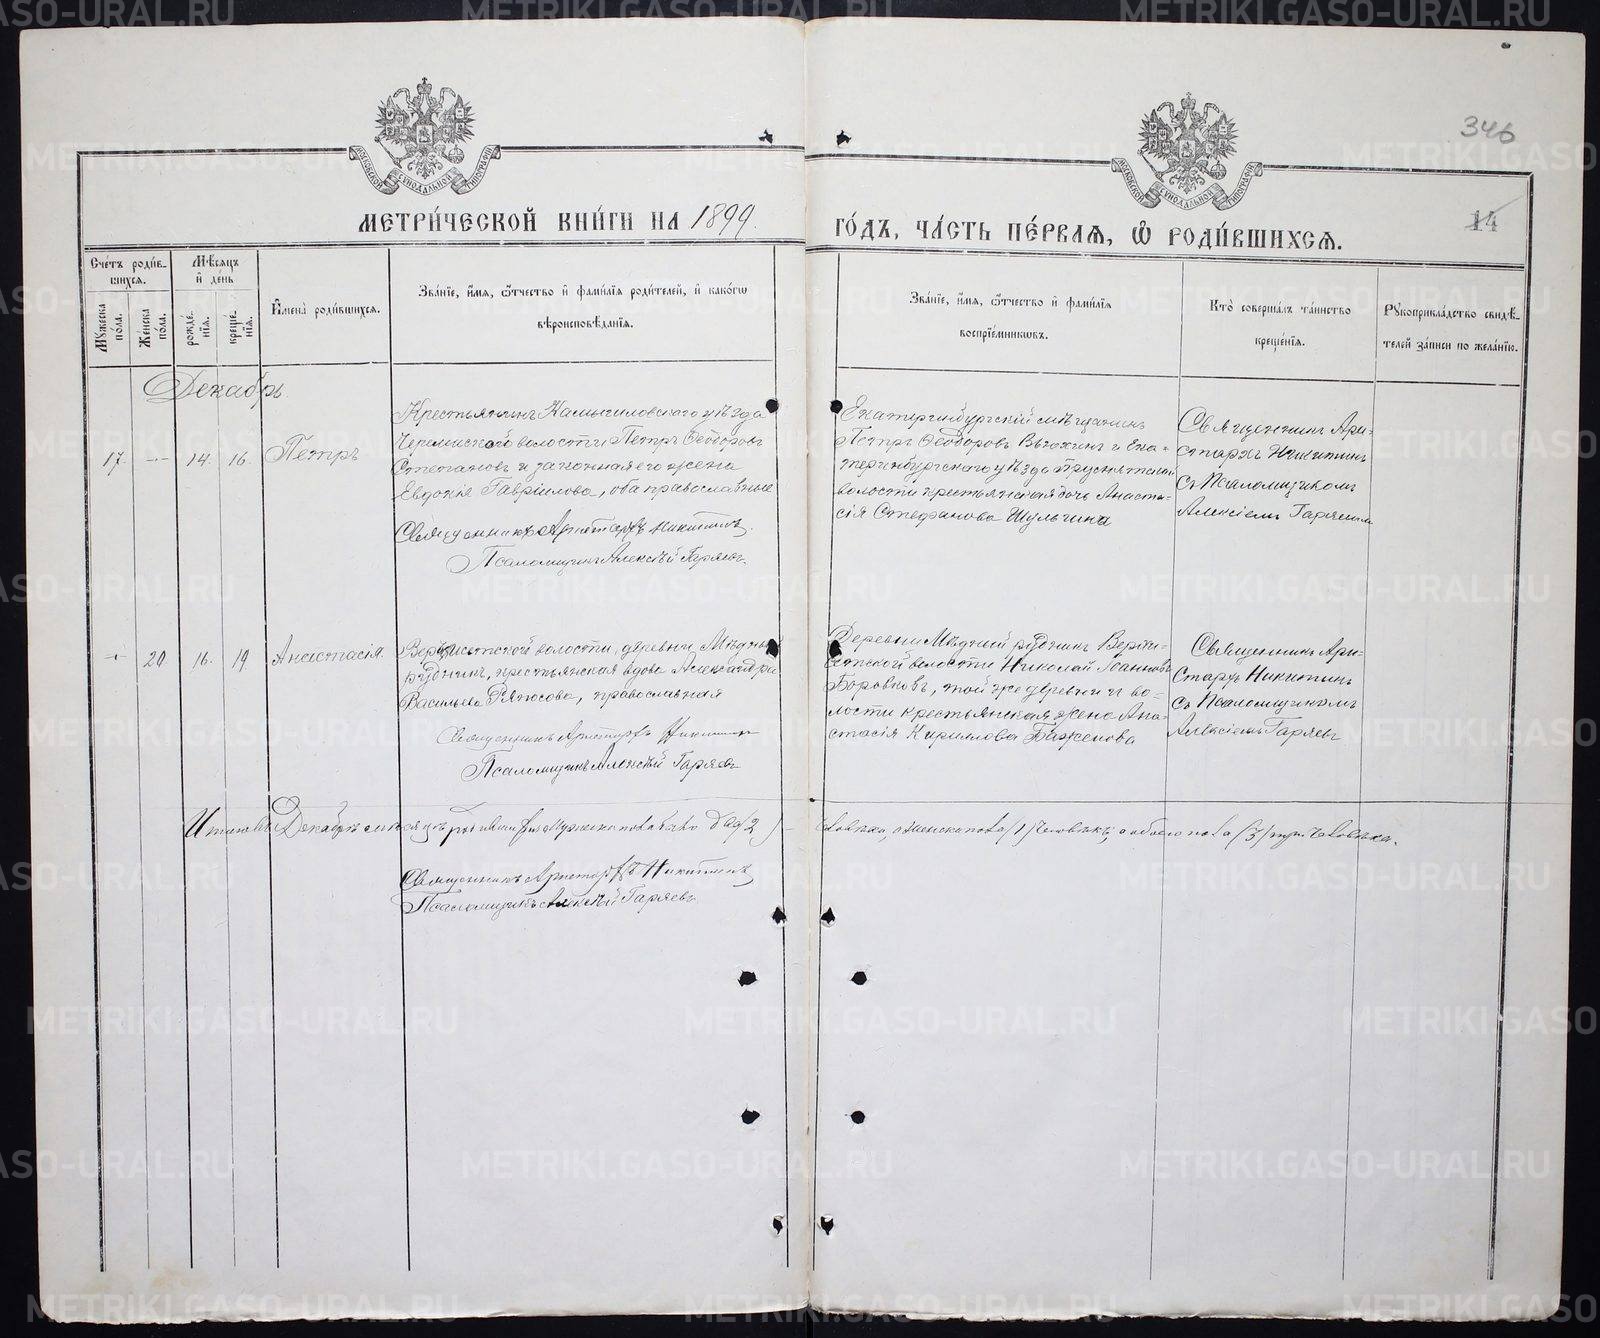 346
14
МОСКОВСКОЙ СѴНОДАЛЬНОЙ ТИПОГРАФІИ
МОСКОВСКОЙ СѴНОДАЛЬНОЙ ТИПОГРАФІИ
МЕТРИ́ЧЕСКОЙ КНИ́ГИ НА 1899.
ГО́ДЪ, ЧА́СТЬ ПЕ́РВАѦ, Ѡ РОДИ́ВШИХСѦ.
Сче́тъ роди́в-
шихсѧ.
Му́жеска
по́ла.
Же́нска
по́ла.
Мѣ́сѧцъ
и҆ де́нь
рожде́-
нїѧ.
креще́-
нїѧ.
И҆мена̀ роди́вшихсѧ.
Зва́нїе, и҆́мѧ, ѻ҆́тчество и҆ фамі́лїѧ роди́телей, и҆ како́гѡ
вѣроисповѣ́данїѧ.
Зва́нїе, и҆́мѧ, ѻ҆́тчество и҆ фамі́лїѧ
воспрїе́мникѡвъ.
Кто̀ соверша́лъ та́инство
креще́нїѧ.
Рꙋкоприкла́дство свидѣ́-
телей за́писи по жела́нїю.
Декабрь.
17 — 14. 16. Петръ
Крестьянинъ Камышловскаго уѣзда
Черемисскаго волости Петръ Ѳеодоровъ
Степановъ и законная его жена
Евдокія Гавріилова, оба православные
Священникъ Аристархъ Никитинъ.
Псаломщикъ Алексѣй Гаряевъ.
Екатеринбургскій мѣщанинъ
Петръ Ѳеодоровъ Вяткинъ и Ека-
теринбургскаго уѣзда
волости крестьянская дочь Анаста-
сія Стефанова Шульгина
Священникъ Ари-
стархъ Никитинъ
съ Псаломщикомъ
Алексіемъ Гаряевымъ
— 20 16. 19 Анастасія.
Верхъисетской волости, деревни Мѣдный
рудникъ, крестьянская вдова Александра
Васильева Ряпосова, православная
Священникъ Аристархъ Никитинъ
Псаломщикъ Алексѣй Гаряевъ
Деревни Мѣдный рудникъ Верхъи-
сетской волости Николай Іоанновъ
Боровковъ, той же деревни и во-
лости крестьянская жена Ана-
стасія Кирилова Баженова
Священникъ Ари-
стархъ Никитинъ
съ Псаломщикомъ
Алексіемъ Гаряевъ
Итого въ Декабрѣ мѣсяцѣ родившихся мужеска пола два /2/
человѣка, а женска пола /1/ человѣкъ, а обоего пола /3/ три человѣка.
Священникъ Аристархъ Никитинъ
Псаломщикъ Алексѣй Гаряевъ
METRIKI.GASO-URAL.RU